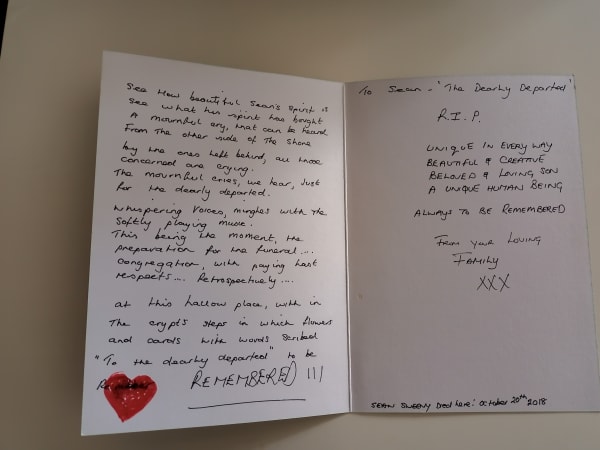 See How beautiful Sean's spirit is
See what his spirit has bought
A mournful cry, that can be heard
From the other side of the shore
by the ones left behind, all those
concerned are crying.
The mournful cries, we hear, just
for the dearly departed.
Whispering voices, mingles with the
softly playing music.
This being the moment, the
preparation for the funeral....
Congregation, with paying last
respects.... Retrospectively....
at this hallow place, with in
The crypts steps in which flowers
and cards with words scribed
"To the dearly departed" to be
REMEMBERED !!!
To Sean - "The Dearly Departed"
R.I.P.
UNIQUE IN EVERY WAY
BEAUTIFUL & CREATIVE
BELOVED & LOVING SON
A UNIQUE HUMAN BEING
ALWAYS TO BE REMEMBERED
From your LOVING
FAMILY
XXX
SEAN SWEENY Died here: October 20th 2018